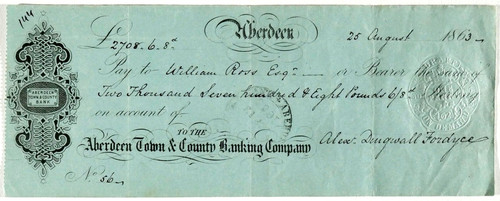 144
Aberdeen
£2708-6-8d 25 August 1863-
Pay to William Ross Esqr. or Bearer the sum of
Two Thousand Seven hundred & Eight Pounds 6/8d Sterling
on account of
TO THE
Aberdeen Town & County Banking Company
Alexr Dingwall Fordyce
No 56
ABERDEEN
TOWN & COUNTY
BANK